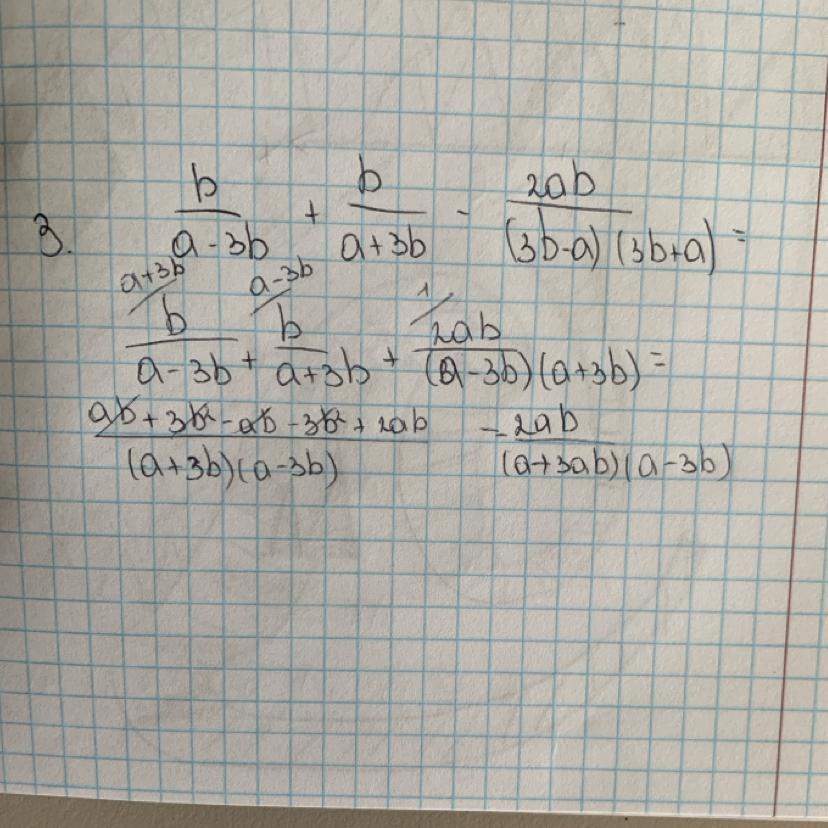 3. b/(a-3b) + b/(a+3b) - 2ab/((3b-a)(3b+a)) =
a+3b/ a-3b/ 1/
b/(a-3b) + b/(a+3b) + 2ab/((a-3b)(a+3b)) =
(ab+3b²-ab-3b²+2ab)/((a+3b)(a-3b)) = 2ab/((a+3ab)(a-3b))